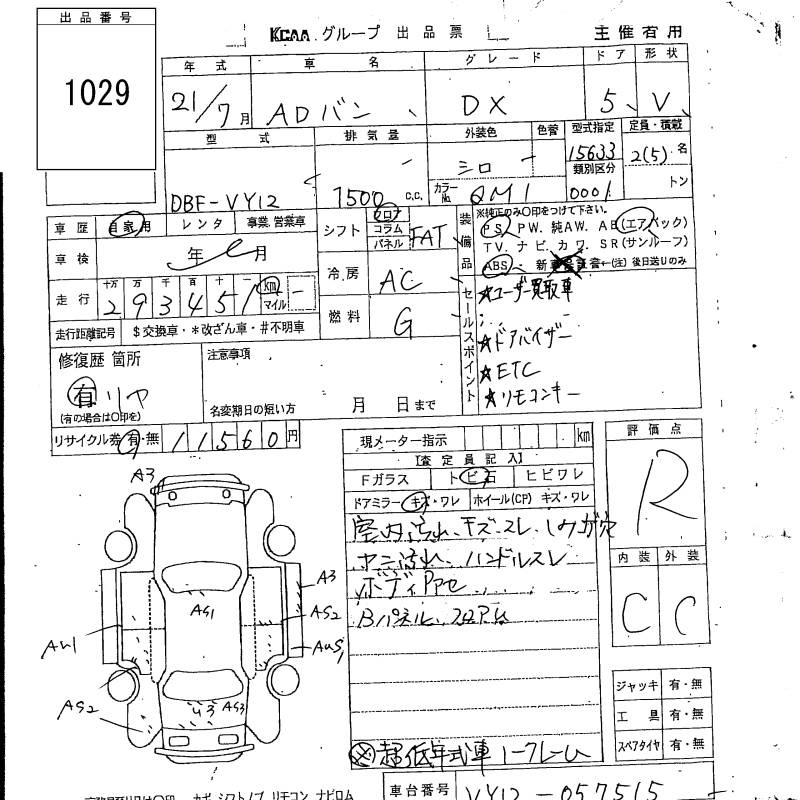 出品番号
1029
KCAA グループ 出品票
主催者用
年式 車名 グレード ドア 形状
21/7月 ADバン DX 5 V
型式 排気量 外装色 色替 型式指定 定員・積載
DBF-VY12 1500 c.c. シロ 15633 2(5)名
類別区分
カラーNo. QM1 0001 トン
車歴 自家用 レンタ 事業・営業車
シフト フロア コラム パネル FAT
装備品
※純正のみ○印をつけて下さい。
PS. PW. 純AW. AB(エアバック)
TV. ナビ. カワ. SR(サンルーフ)
ABS 新車保証書←(注)後日送りのみ
車検 年 月
冷房 AC
走行 十万 万 千 百 十 一 km マイル
293451
燃料 G
走行距離記号 $交換車・*改ざん車・#不明車
セールスポイント
☆ユーザー買取車
☆ドアバイザー
☆ETC
☆リモコンキー
修復歴 箇所
有 リヤ
(有の場合は○印を)
注意事項
名変期日の短い方 月 日まで
リサイクル券 有・無 11560円
現メーター指示 km
【査定員記入】
Fガラス トビ石 ヒビワレ
ドアミラー キズ・ワレ ホイール(CP) キズ・ワレ
室内汚れ、キズ、スレ、
ヤニ汚れ、ハンドルスレ
Bパネル、
超低年式車 1-クレーム
評価点
R
内装 外装
C C
ジャッキ 有・無
工具 有・無
スペアタイヤ 有・無
A3
A3
AS1
AS2
AW1
AS2
U3 AS3
車台番号 VY12-057515